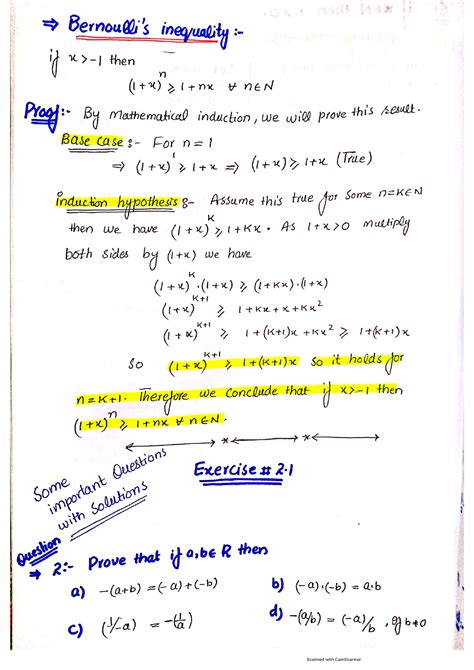 ⇒ Bernoulli's inequality :-
if x > -1 then
(1+x)^n ⩾ 1+nx ∀ n∈N
Proof:- By Mathematical induction, we will prove this result.
Base case :- For n = 1
⇒ (1+x)^1 ⩾ 1+x ⇒ (1+x) ⩾ 1+x (True)
induction hypothesis :- Assume this true for some n=K∈N
then we have (1+x)^K ⩾ 1+Kx . As 1+x>0 multiply
both sides by (1+x) we have
(1+x)^K . (1+x) ⩾ (1+Kx) . (1+x)
(1+x)^K+1 ⩾ 1+Kx + x + Kx²
(1+x)^K+1 ⩾ 1+(K+1)x + Kx² ⩾ 1+(K+1)x
So (1+x)^K+1 ⩾ 1+(K+1)x So it holds for
n=K+1. Therefore we conclude that if x>-1 then
(1+x)^n ⩾ 1+nx ∀ n∈N.
Exercise # 2.1
Some
important Questions
with Solutions
Question
⇒ 2:- Prove that if a,b∈R then
a) -(a+b) = (-a)+(-b) b) (-a).(-b) = a.b
c) (1/-a) = -(1/a) d) -(a/b) = (-a)/b , if b≠0
Scanned with CamScanner